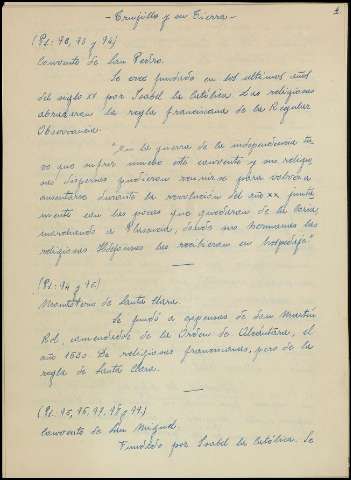 1
- Trujillo y su Tierra -
(Ps: 70, 73 y 74)
Convento de San Pedro.
Se cree fundado en los ultimos años
del siglo XV por Isabel la Católica. Las religiosas
abrazaron la regla franciscana de la Regular
Observancia.
"En la guerra de la independencia tu-
vo que sufrir mucho este convento y sus religio-
sas dispersas pudieron reunirse para volver a
ausentarse durante la revolución del año XX junta-
mente con las pocas que quedaron de la
marchando a Plasencia, donde sus hermanas las
religiosas Ildefonsas las recibieron en hospedaje"
(Ps: 74 y 75)
Monasterio de Santa Clara.
Se fundó a expensas de San Martín
Rol, comendador de la Orden de Alcántara, el
año 1530. De religiosas franciscanas, pero de la
regla de Santa Clara.
(Ps: 75, 76, 77, 78 y 79)
Convento de San Miguel.
Fundado por Isabel la Católica. Se